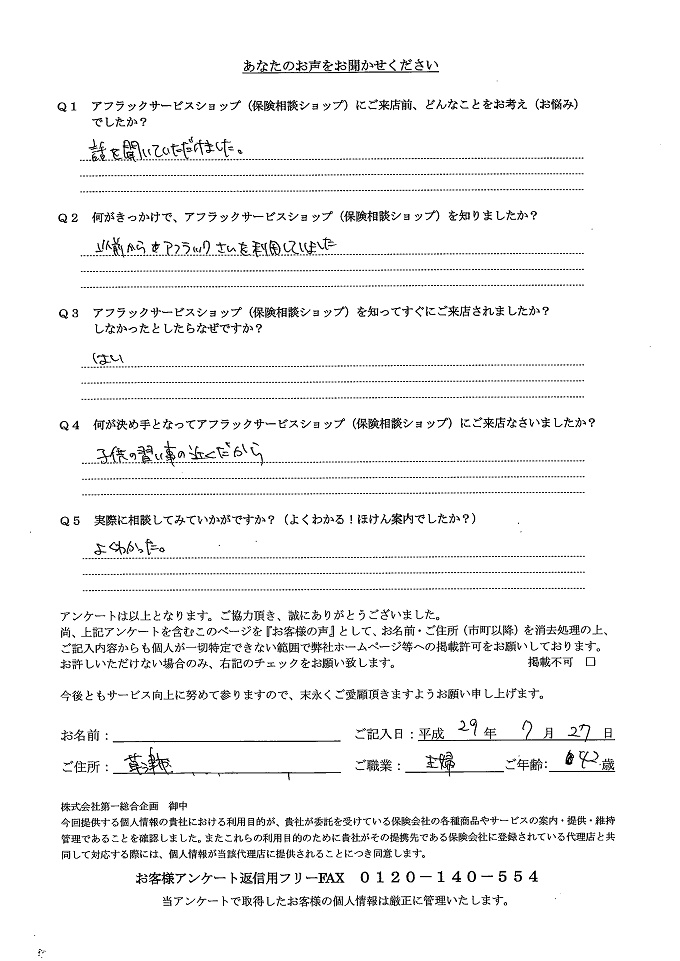 あなたのお声をお聞かせください
Q1 アフラックサービスショップ（保険相談ショップ）にご来店前、どんなことをお考え（お悩み）
でしたか？
話を聞いていただけました。
Q2 何がきっかけで、アフラックサービスショップ（保険相談ショップ）を知りましたか？
以前からアフラックさんを利用していました
Q3 アフラックサービスショップ（保険相談ショップ）を知ってすぐにご来店されましたか？
しなかったとしたらなぜですか？
はい
Q4 何が決め手となってアフラックサービスショップ（保険相談ショップ）にご来店なさいましたか？
子供の習い事の近くだから
Q5 実際に相談してみていかがですか？（よくわかる！ほけん案内でしたか？）
よくわかった。
アンケートは以上となります。ご協力頂き、誠にありがとうございました。
尚、上記アンケートを含むこのページを『お客様の声』として、お名前・ご住所（市町以降）を消去処理の上、
ご記入内容からも個人が一切特定できない範囲で弊社ホームページ等への掲載許可をお願いしております。
お許しいただけない場合のみ、右記のチェックをお願い致します。 掲載不可 □
今後ともサービス向上に努めて参りますので、末永くご愛顧頂きますようお願い申し上げます。
お名前： ご記入日：平成 29 年 7 月 27 日
ご住所： ご職業： 主婦 ご年齢： 42 歳
株式会社第一総合企画 御中
今回提供する個人情報の貴社における利用目的が、貴社が委託を受けている保険会社の各種商品やサービスの案内・提供・維持
管理であることを確認しました。またこれらの利用目的のために貴社がその提携先である保険会社に登録されている代理店と共
同して対応する際には、個人情報が当該代理店に提供されることにつき同意します。
お客様アンケート返信用フリーFAX 0120－140－554
当アンケートで取得したお客様の個人情報は厳正に管理いたします。